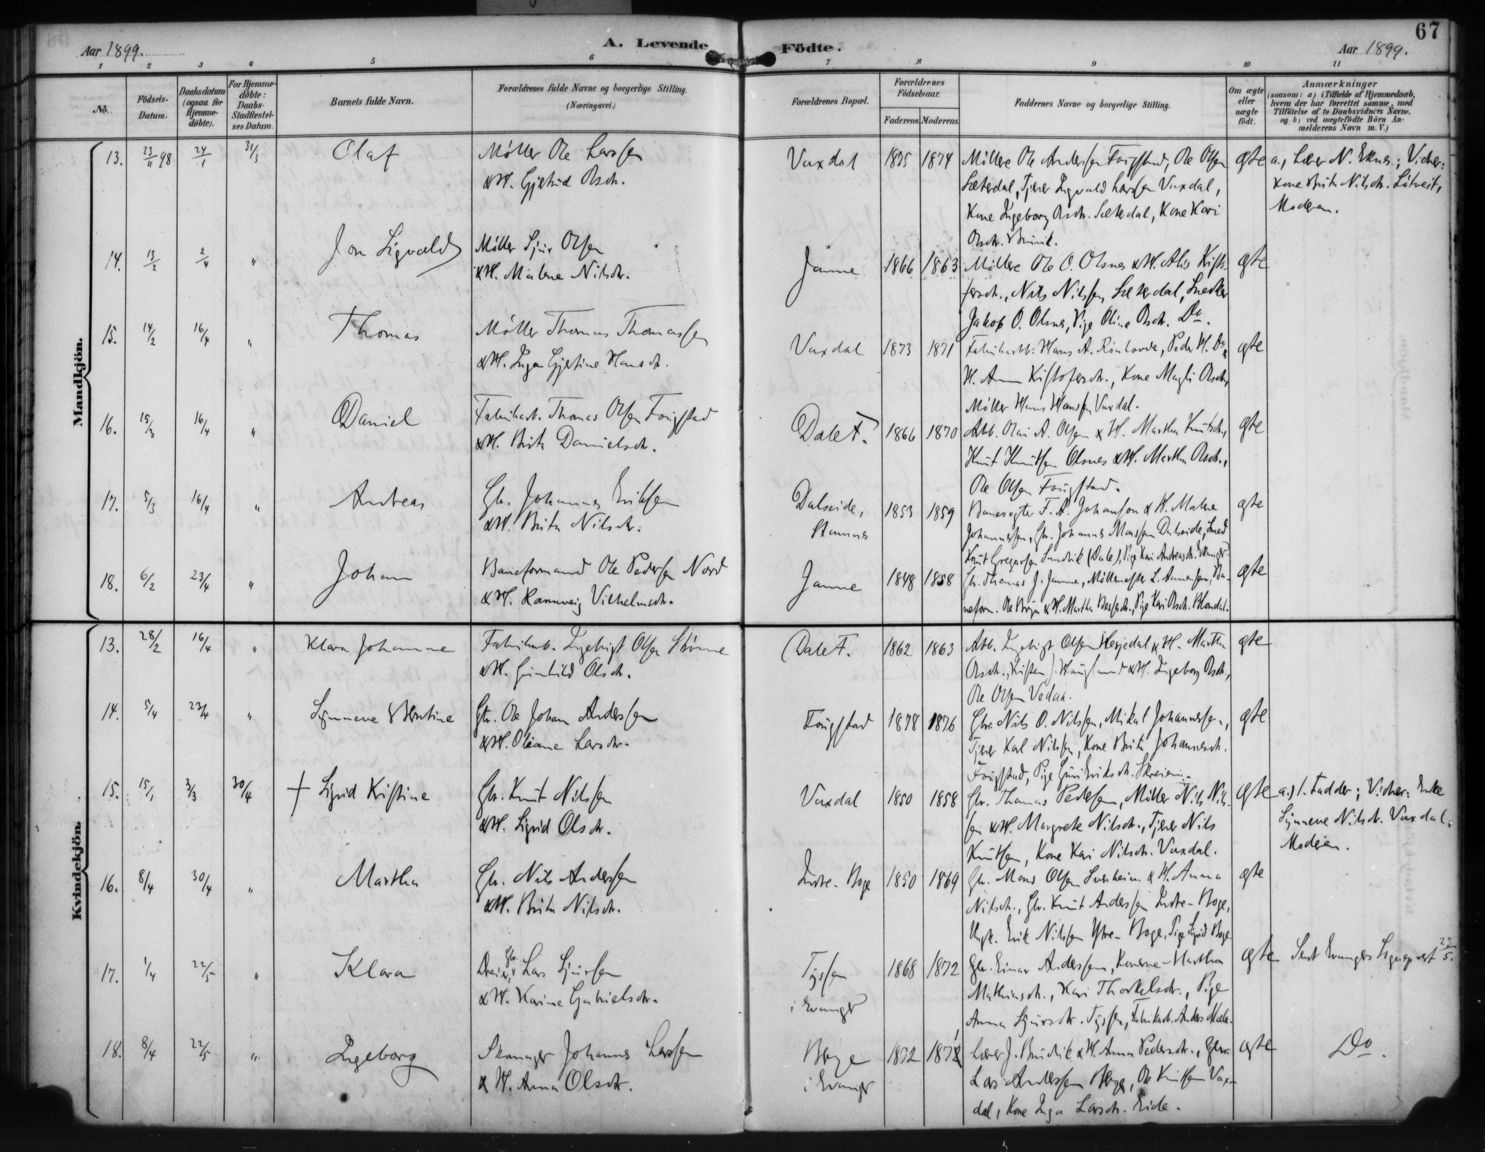 67
Aar 1899.
A. Levende Födte.
Aar 1899.
1 2 3 4 5 6 7 8 9 10 11
No.
Födsels-Datum.
Daabsdatum (ogsaa for Hjemme-döbte).
For Hjemme-döbte: Daabs-Stadfæstel-ses Datum.
Barnets fulde Navn.
Forældrenes fulde Navne og borgerlige Stilling. (Næringsvei.)
Forældrenes Bopæl.
Forældrenes Födselsaar.
Faderens. Moderens.
Faddernes Navne og borgerlige Stilling.
Om ægte eller uægte födt.
Anmærkninger
(saasom: a) i Tilfælde af Hjemmedaab, hvem der har forrettet samme, med Tilföielse af to Daabsvidners Navne. og b) ved uægtefödte Börn An-melderens Navn m. V.)
Mandkjön.
13. 23/11 98 24/1 31/3 Olaf
Møller Ole Larssen
& H. Gjertrud Olsdr.
Vaxdal 1875 1874
Møllere Ole Andersen Fougstad, Ole Olsen
Sætredal, Tjener Ingvald Larssen Vaxdal,
Kone Ingeborg Olsdr. Sætredal, Kone Kari
Olsdr.
ægte
a., Lærer N. Eknes; Vidner:
Kone Brita Nilsdr.
Moderen.
14. 13/2 2/4 " Jon Sigvald
Møller Sjur Olsen
& H. Malene Nilsdr.
Janne 1866 1863
Møllere Ole O. Olsnes & H.
Nils Nilssen Sæterdal, Snedker
Jakob O. Olsnes, Pige Oline Olsdr. Do.
ægte
15. 14/2 16/4 " Thomas
Møller Thomas Thomassen
& H. Inga Gjertine Hansdr.
Vaxdal 1873 1871
Fabrikarb. Hans A.
H. Anna Kristofersdr., Kone Magli Olsdr.,
Møller Hans Hanssen Vaxdal.
ægte
16. 15/3 16/4 " Daniel
Fabrikarb. Thomas Olsen Fougstad
& H. Brita Danielsdr.
Dale F. 1866 1870
Arb. Olai A. Olsen & H. Martha Knutsdr.,
Knut Knutsen Olsnes & H. Martha Olsdr.,
Ole Olsen Fougstad.
ægte
17. 5/3 16/4 " Andreas
Gbr. Johannes Eriksen
& H. Brita Nilsdr.
Dalseide,
Stamnes
1853 1859
Banevogter F. A. Johanson & H. Malene
Johannessen, Gbr. Johannes Monssen Dalseide,
Knut Gregersen (Dale), Pige Kari Andersdr.
ægte
18. 6/2 23/4 " Johan
Baneformand Ole Pedersen Nord
& H. Rannveig Vilhelmsdr.
Janne 1848 1858
Gbr. Thomas J. Janne,
& H. Martha Pige Kari Olsdr.
ægte
Kvindekjön.
13. 28/2 16/4 " Klara Johanne
Fabrikarb. Ingebrigt Olsen
& H. Gunhild Olsdr.
Dale F. 1862 1863
Arb. Ingebrigt Olsen & H. Martha
Olsdr., & H. Ingeborg Olsdr.,
Ole Olsen
ægte
14. 5/4 23/4 "
Gbr. Ole Johan Anderssen
& H. Oleane Larsdr.
Fougstad 1878 1876
Gbr. Nils O. Nilssen, Mikal Johannessen,
Tjener Karl Nilssen, Kone Brita Johannesdr.
Fougstad, Pige Guri Eriksdr.
ægte
15. 15/1 3/3 30/4 + Sigrid Kristine
Gbr. Knut Nilssen
& H. Sigrid Olsdr.
Vaxdal 1850 1858
Gbr. Thomas Pedersen, Møller Nils Nils-
sen & H. Margrete Nilsdr., Tjener Nils
Knutsen, Kone Kari Nilsdr. Vaxdal.
ægte
a., 1. Fadder; Vidner: Enke
Synneve Nilsdr. Vaxdal,
Moderen.
16. 8/4 30/4 " Martha
Gbr. Nils Andersen
& H. Brita Nilsdr.
Indre-Boge 1850 1869
Gbr. Mons Olsen & H. Anna
Nilsdr., Gbr. Knut Anderssen Indre-Boge,
Ungk. Erik Nilssen Ytre-Boge, Pige Sigrid Boge
ægte
17. 1/4 22/5 " Klara
Lars Sjurssen
& H. Karine Gabrielsdr.
Tyssen
i Evanger
1868 1872
Gbr. Einar Anderssen, Konerne Martha
Mathiasdr., Kari Thorkelsdr., Pige
Anna Sjursdr. Tyssen, Fabrikarb. Anders
ægte
Sendt Evangers Sognepræst 23/5.
18. 8/4 22/5 " Ingeborg
Skomager Johannes Larssen
& H. Anna Olsdr.
Boge
i Evanger
1872
Lærer J. & H. Anna Pedersdr.,
Lars Anderssen Boge, Ole Knutsen Vax-
dal, Kone Inga Larsdr. Eide.
ægte
Do.